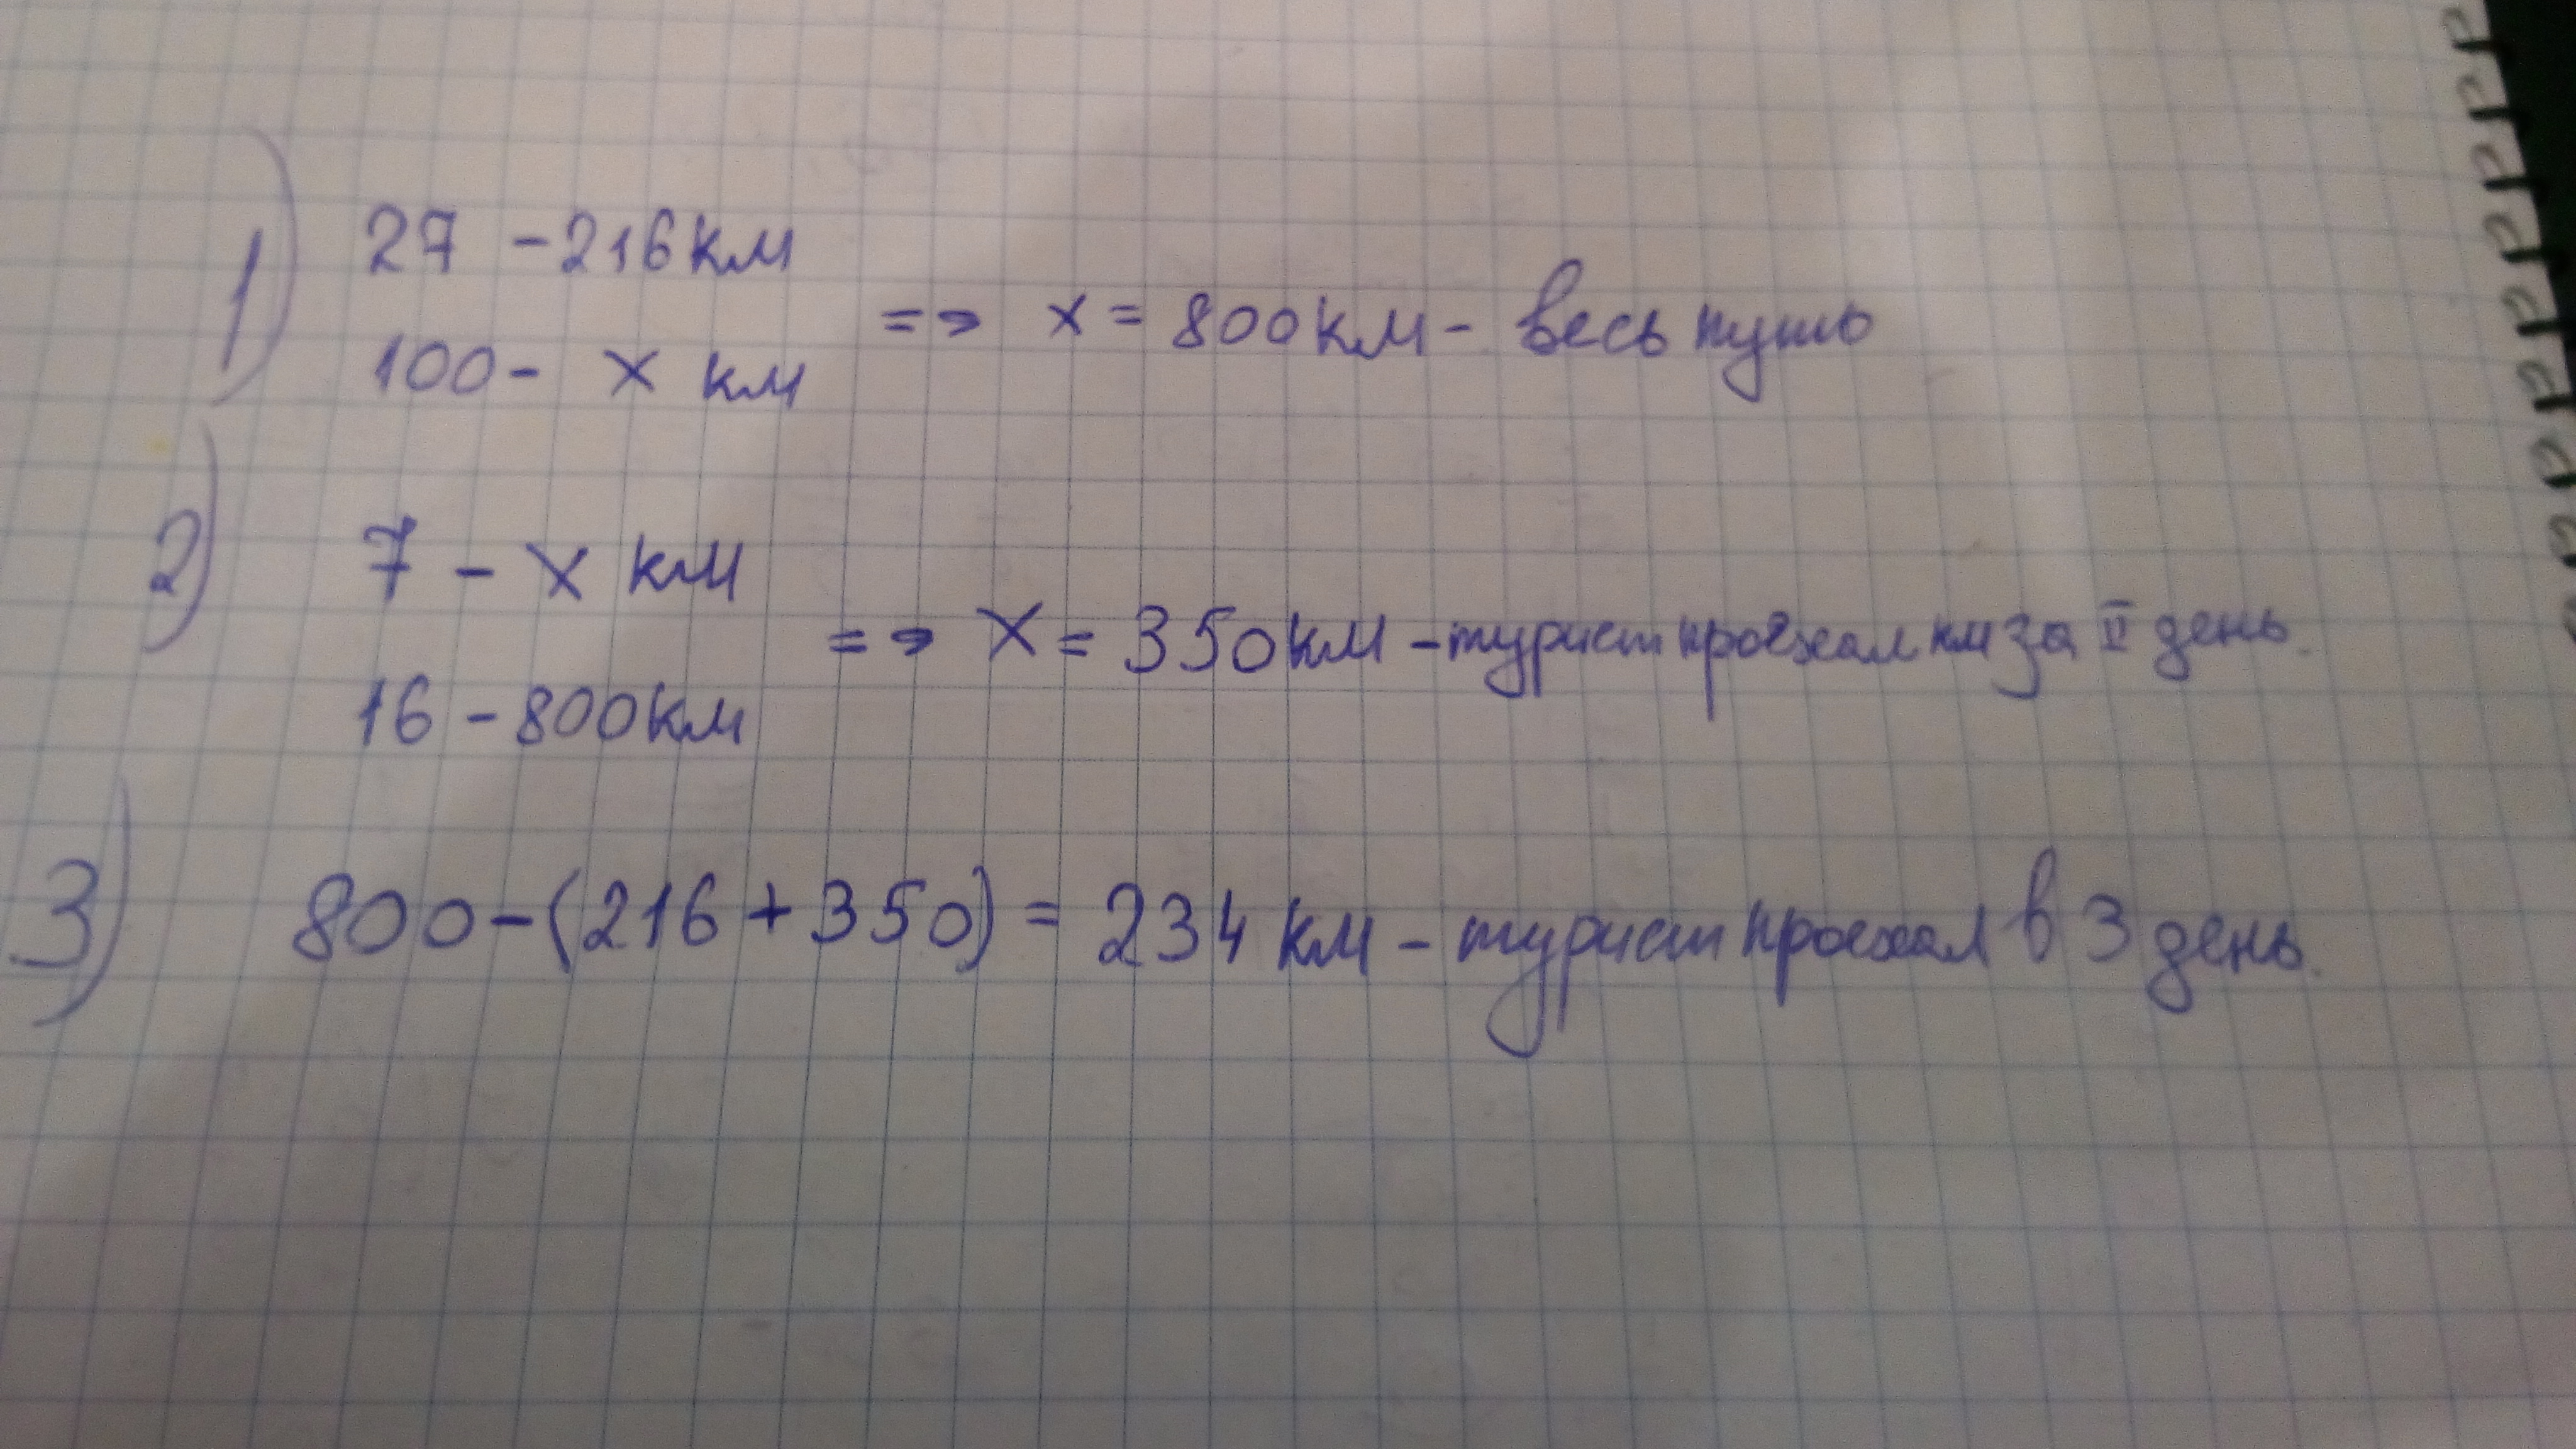 1) 27 - 216 км
100 - x км
=> x = 800 км - весь путь
2) 7 - x км
16 - 800 км
=> x = 350 км - турист проехал км за II день.
3) 800 - (216 + 350) = 234 км - турист проехал в 3 день.